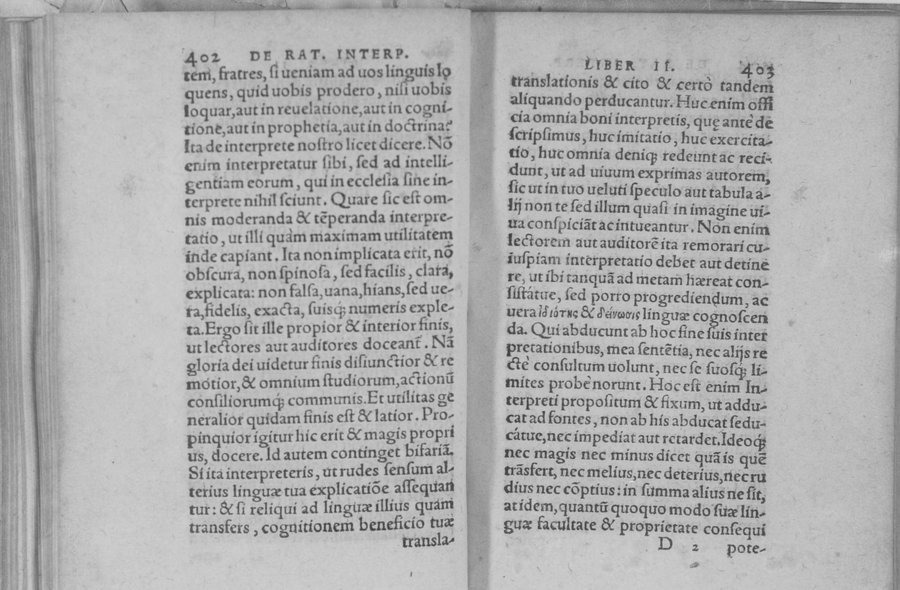 402 DE RAT. INTERP.
tem, fratres, si ueniam ad uos linguis lo
quens, quid uobis prodero, nisi uobis
loquar, aut in reuelatione, aut in cogni-
tione, aut in prophetia, aut in doctrina?
Ita de interprete nostro licet dicere. Nõ
enim interpretatur sibi, sed ad intelli-
gentiam eorum, qui in ecclesia sine in-
terprete nihil sciunt. Quare sic est om-
nis moderanda & tẽperanda interpre-
tatio, ut illi quàm maximam utilitatem
inde capiant. Ita non implicata erit, nõ
obscura, non spinosa, sed facilis, clara,
explicata: non falsa, uana, hians, sed ue-
ra, fidelis, exacta, suisq; numeris exple-
ta. Ergo sit ille propior & interior finis,
ut lectores aut auditores doceant̃. Nã
gloria dei uidetur finis disiunctior & re
motior, & omnium studiorum, actionũ
consiliorumq; communis. Et utilitas ge
neralior quidam finis est & latior. Pro-
pinquior igitur hic erit & magis propri
us, docere. Id autem continget bifariã.
Si ita interpreteris, ut rudes sensum al-
terius linguæ tua explicatiõe assequan
tur: & si reliqui ad linguæ illius quam
transfers, cognitionem beneficio tuæ
transla-
LIBER II. 403
translationis & cito & certò tandem
aliquando perducantur. Huc enim offi
cia omnia boni interpretis, quę antè de
scripsimus, huc imitatio, huc exercita-
tio, huc omnia deniq; redeunt ac reci-
dunt, ut ad uiuum exprimas autorem,
sic ut in tuo ueluti speculo aut tabula a-
lij non te sed illum quasi in imagine ui-
ua conspiciãt ac intueantur. Non enim
lectorem aut auditorẽ ita remorari cu-
iuspiam interpretatio debet aut detine
re, ut ibi tanquã ad metam hæreat con-
sistátue, sed porro progrediendum, ac
uera ἰδιότης & δείνωσις linguæ cognoscen
da. Qui abducunt ab hoc fine suis inter
pretationibus, mea sentẽtia, nec alijs re
ctè consultum uolunt, nec se suosq; li-
mites probè norunt. Hoc est enim In-
terpreti propositum & fixum, ut addu-
cat ad fontes, non ab his abducat sedu-
cátue, nec impediat aut retardet. Ideoq;
nec magis nec minus dicet quã is quẽ
trãsfert, nec melius, nec deterius, nec ru
dius nec cõptius: in summa alius ne sit,
at idem, quantũ quoquo modo suæ lin-
guæ facultate & proprietate consequi
D 2 pote-